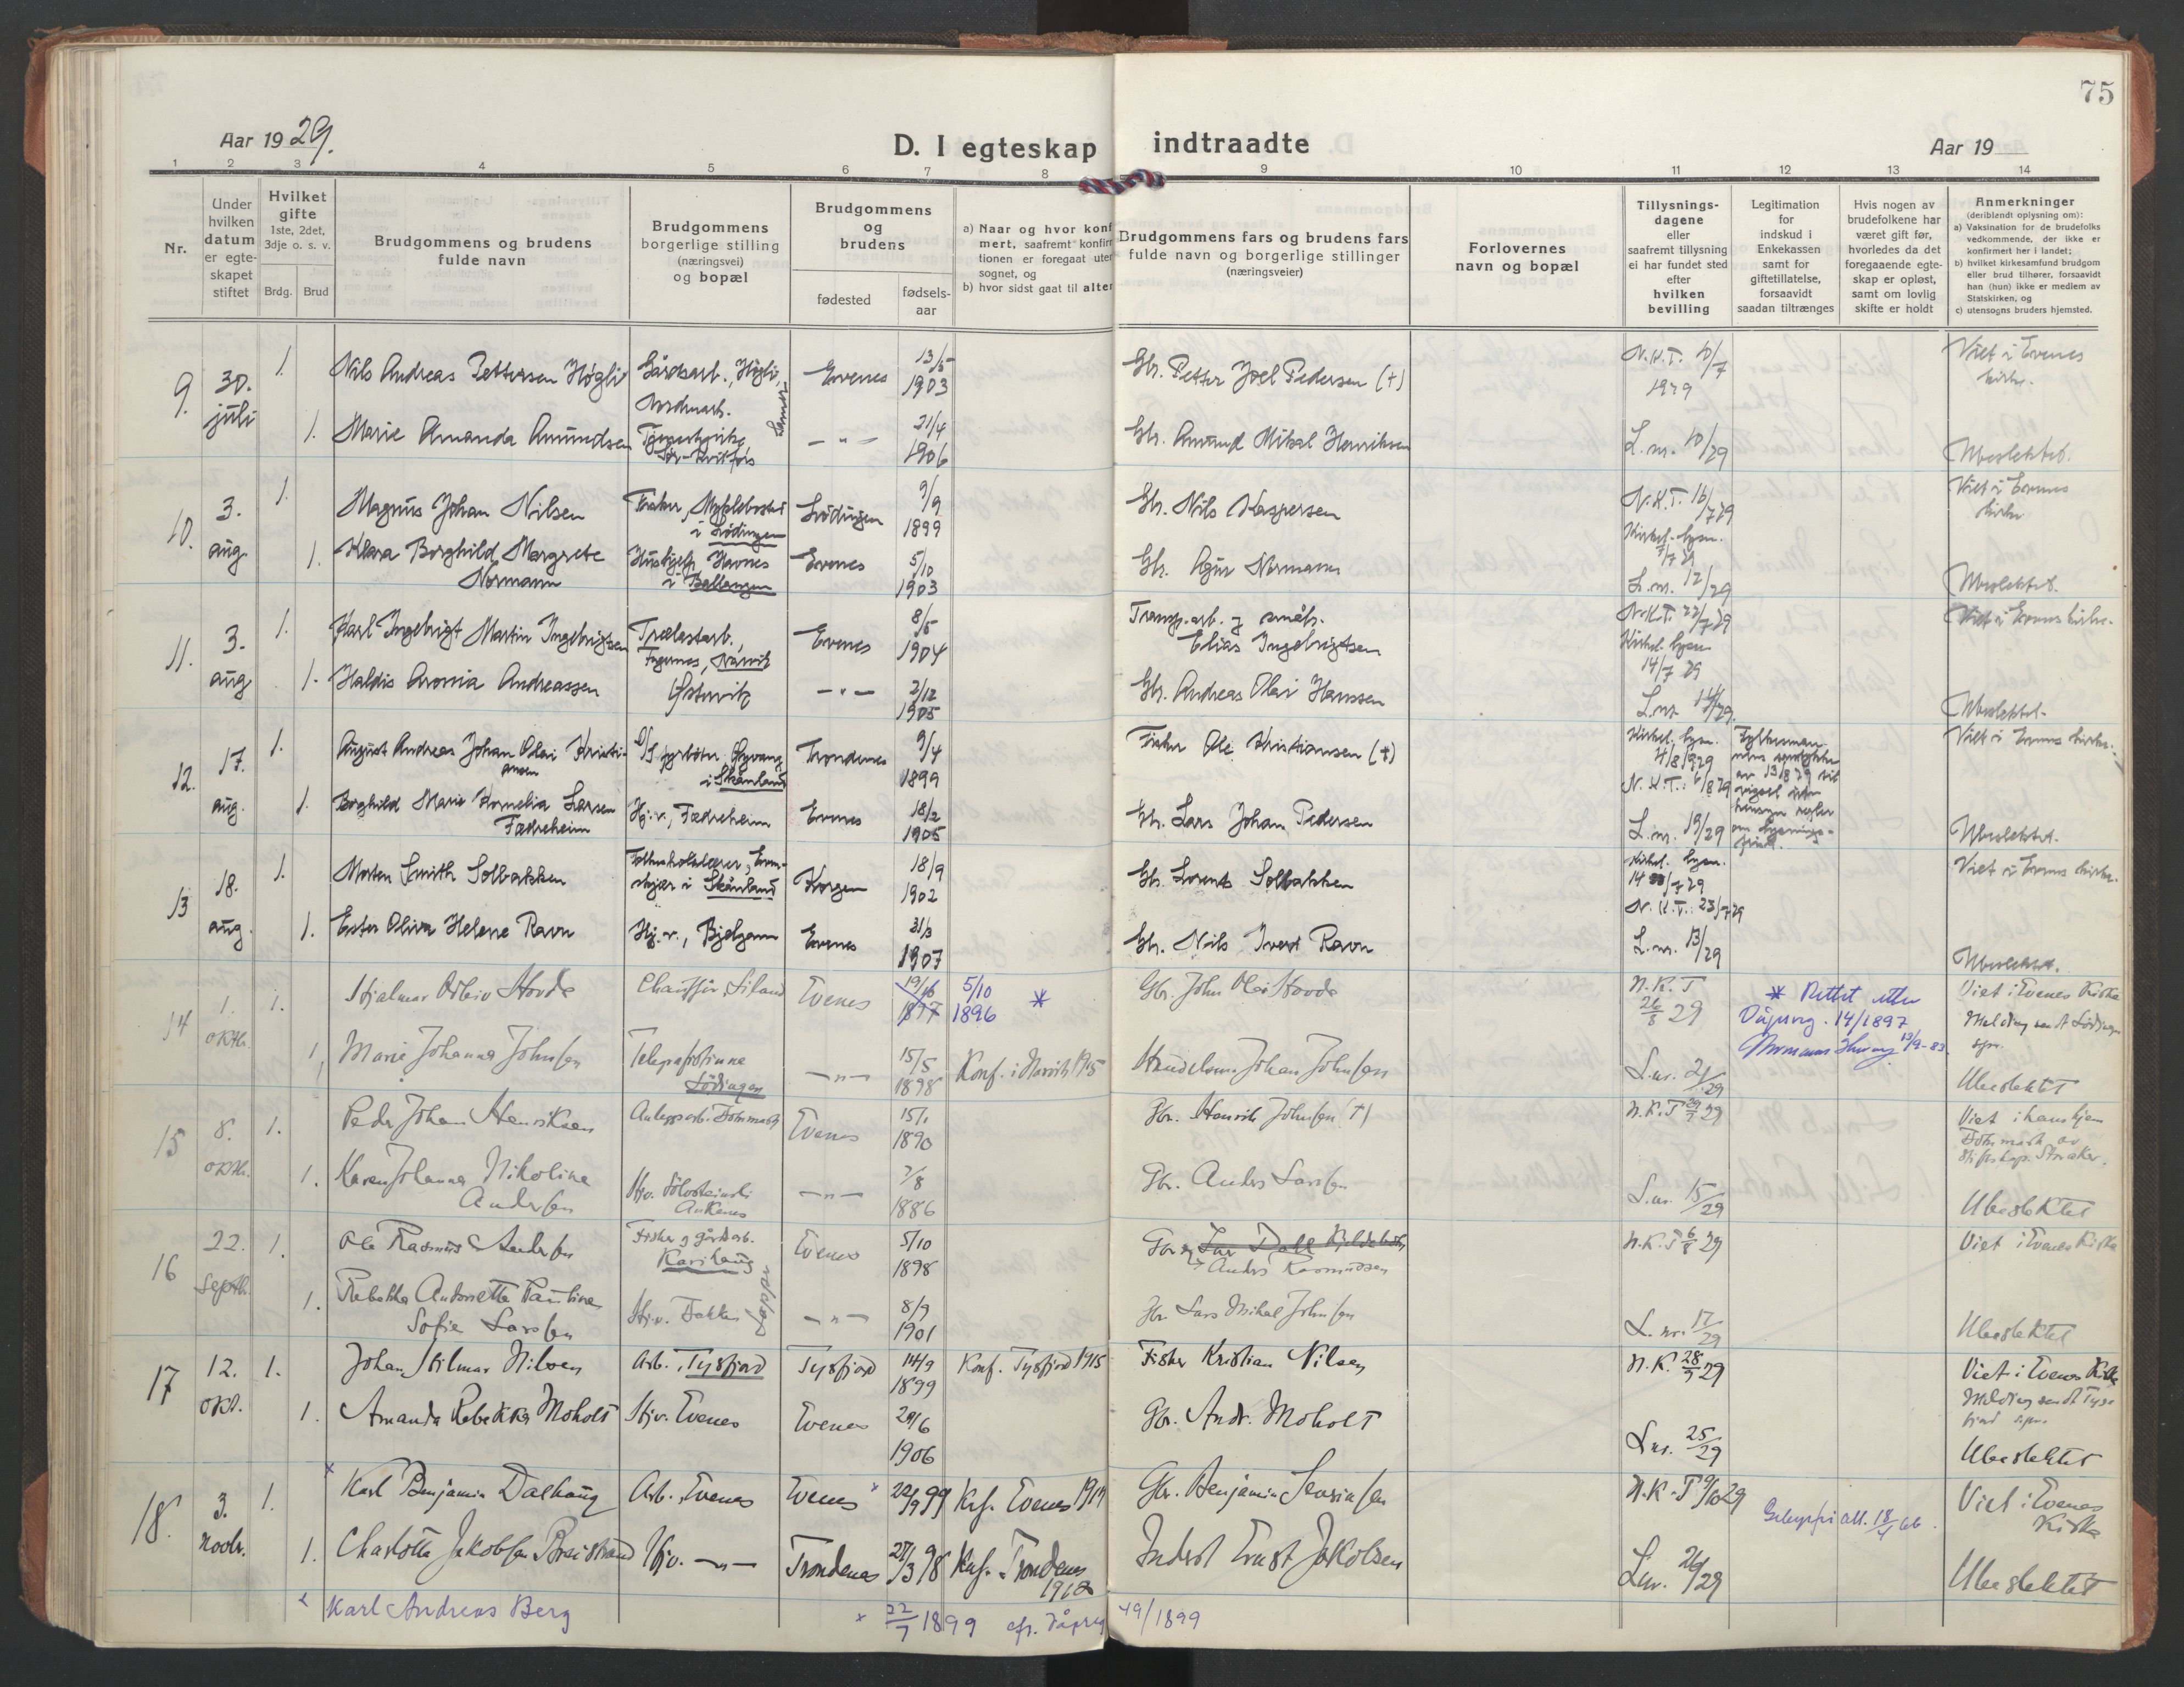 75
Aar 19 29.
D. I egteskap indtraadte
Aar 19
1 2 3 4 5 6 7 8 9 10 11 12 13 14
Nr.
Under hvilken datum er egteskapet stiftet
Hvilket gifte 1ste, 2det, 3dje o. s. v.
Brdg. Brud
Brudgommens og brudens fulde navn
Brudgommens borgerlige stilling (næringsvei) og bopæl
Brudgommens og brudens
fødested
fødsels-aar
a) Naar og hvor konf
mert, saafremt konfir
tionen er foregaat uter
sognet, og
b) hvor sidst gaat til alter
Brudgommens fars og brudens fars
fulde navn og borgerlige stillinger
(næringsveier)
Forlovernes
navn og bopæl
Tillysnings-
dagene
eller
saafremt tillysning
ei har fundet sted
efter
hvilken
bevilling
Legitimation
for
indskud i
Enkekassen
samt for
giftetillatelse,
forsaavidt
saadan tiltrænges
Hvis nogen av
brudefolkene har
været gift før,
hvorledes da det
foregaaende egte-
skap er opløst,
samt om lovlig
skifte er holdt
Anmerkninger
(deriblendt oplysning om):
a) Vaksination for de brudefolks
vedkommende, der ikke er
konfirmert her i landet;
b) hvilket kirkesamfund brudgom
eller brud tilhører, forsaavidt
han (hun) ikke er medlem av
Statskirken, og
c) utensogns bruders hjemsted.
9. 30. juli 1. Nils Andreas Pettersen Høgli Gårdsarb., Høgli, Nordmark. Evenes 13/5 1903 Gbr. Petter Joel Pedersen (†) N.K.T. 10/7 1929 Viet i Evenes kirke.
1. Marie Amanda Amundsen Evenes 21/4 1906 Gbr. Amund Mikal Henriksen L.nr. 10/29 Ubeslektet.
10. 3. aug. 1. Magnus Johan Nilsen Fisker, i Lødingen Lødingen 9/9 1899 Gbr. Nils Kaspersen N.K.T. 16/7 29 Viet i Evenes kirke
1. Klara Borghild Margrete Normann Hushjelp, Havnes i Ballangen Evenes 5/10 1903 Gbr. Ågur Normann Kirkel. lysn. 7/7 29 L.nr. 12/29 Ubeslektet.
11. 3. aug. 1. Karl Ingebrigt Martin Ingebrigtsen Trælastarb., Fagernes, Narvik Evenes 8/5 1904 Transp.arb. og småbr. Elias Ingebrigtsen N.K.T. 22/7 29 Viet i Evenes kirke.
1. Haldis Aronia Andreassen Østervik — " — 2/12 1905 Gbr. Andreas Olai Hanssen Kirkel. lysn. 14/7 29 L.nr. 14/29. Ubeslektet.
12. 17. aug. 1. August Andreas Johan Olai Kristiansen D/S fyrbøter, i Skånland Trondenes 9/4 1899 Fisker Ole Kristiansen (†) Kirkel. lysn. 4/8 1929 N.K.T.: 6/8 29 Viet i Evenes kirke.
1. Borghild Marie Kornelia Larsen Fædreheim Hj.v., Fædreheim Evenes 18/2 1905 Gbr. Lars Johan Pedersen L.nr. 19/29 Ubeslektet.
13 18. aug. 1. Morten Smith Solbakken Folkeskolelærer, Evenskjær i Skånland Korgen 18/9 1902 Gbr. Lorents Solbakken Kirkel. lysn. 14/7 29 N.K.T.: 23/7 29 Viet i Evenes kirke.
1. Ester Oliva Helene Ravn Hj.v., Bjelgam Evenes 31/3 1907 Gbr. Nils Ivert Ravn L.nr. 13/29 Ubeslektet.
14 1. oktbr. 1. Hjalmar Odleiv Hovde Chauffør, Liland Evenes 19/10 1897 5/10 1896 * Gbr. John Olai Hovde N.K.T 26/8 29 * Rettet etter Dåpsreg. 14/1897 19/9-83. Viet i Evenes Kirke Melding sendt Lødingen spr.
1, Marie Johanna Johnsen Telegrafistinne Lødingen — " — 15/5 1898 Konf. i Narvik 1915 Handelsm. Johan Johnsen L.nr. 21/29 Ubeslektet
15 8. oktbr. 1. Peder Johan Henriksen Anleggsarb. Evenes 15/1 1890 Gbr. Henrik Johnsen (†) N.K.T 29 Viet i hans hjem
1. Karen Johanna Nikoline Andersen Hjv. Ankenes — " — 7/8 1886 Gbr. Anders Larsen L.nr. 15/29 Ubeslektet
16 22. Septbr. 1. Ole Rasmus Andersen Fisker og gårdsarb. Karihaug Evenes 5/10 1898 Gbr. Anders Rasmussen N.K.T 6/8 29 Viet i Evenes Kirke
1. Rebekka Antonette Pauline Sofie Larsen Hjv. Lapper — " — 8/9 1901 Gbr. Lars Mikal Johnsen L.nr. 17/29 Ubeslektet
17 12. okt. 1. Johan Hilmar Nilsen Arb., Tysfjord Tysfjord 14/9 1899 Konf. Tysfjord 1915 Fisker Kristian Nilsen N.K. 28/9 29 Viet i Evenes Kirke Melding sendt Tysfjord spr.
1. Amanda Rebekka Moholt Hjv. Evenes Evenes 29/6 1906 Gbr. Andr. Moholt L.nr. 25/29 Ubeslektet
18. 3. novbr. 1. x Karl Benjamin Dalhaug Arb., Evenes Evenes x 22/9 99 Knf. Evenes 1914 Gbr. Benjamin Sevrinsen N.K.T 9/10 29 Viet i Evenes Kirke
1. Charlotte Jakobsen Breistrand Hjv. — " — Trondenes 27/3 98 Knf. Trondenes 1912 Inderst Ernst Jakobsen L.nr. 26/29 Gebyrfri att. 18/4 66. Ubeslektet
x Karl Andreas Berg x 22/7 1899 cfr. Dåpsreg 49/1899